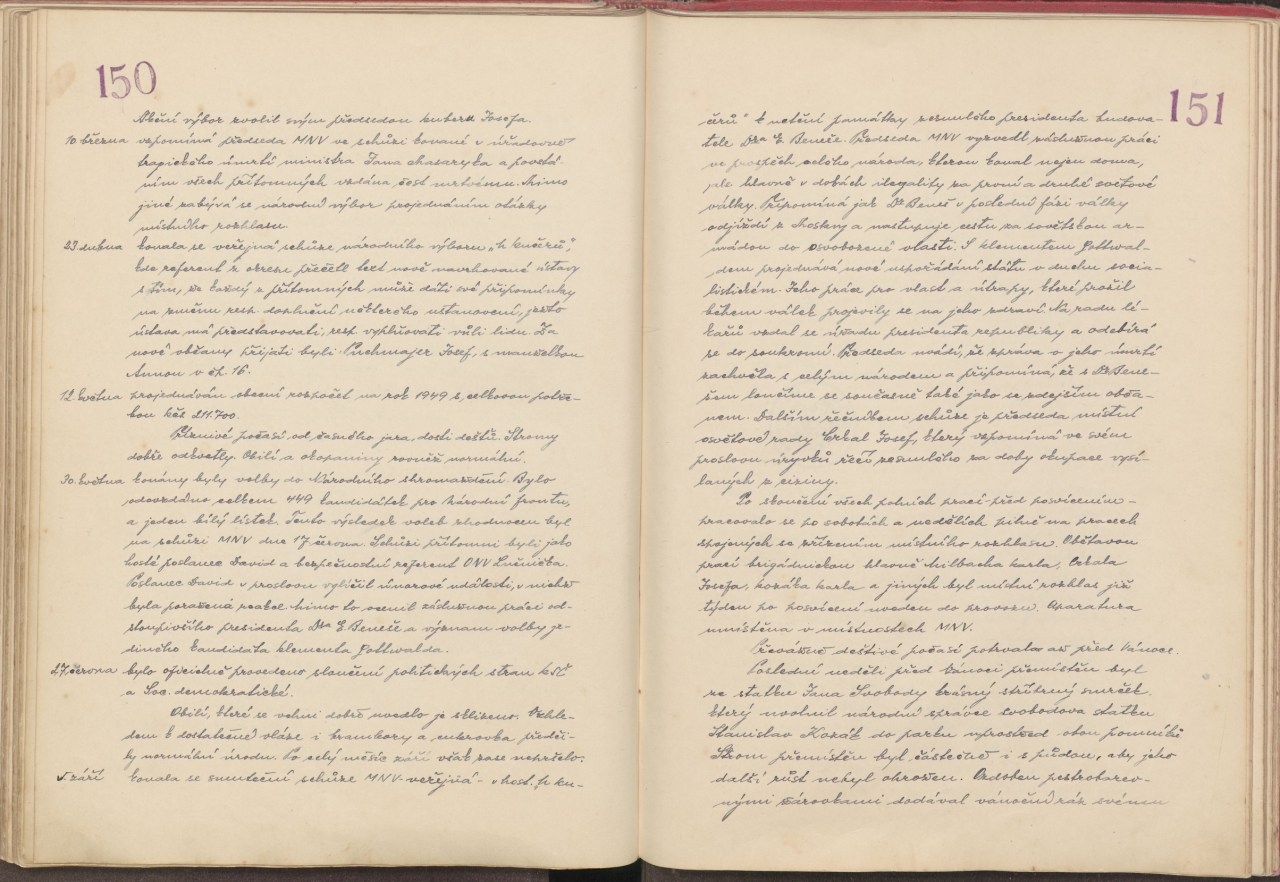 150
Akční výbor zvolil svým předsedou Kuberu Josefa.
10. března vzpomíná předseda MNV ve schůzi konané v úřadovně
tragického úmrtí ministra Jana Masaryka a povstá-
ním všech přítomných vzdána čest mrtvému. Mimo
jiné zabývá se národní výbor projednáním otázky
místního rozhlasu.
23. dubna konala se veřejná schůze národního výboru „u Kučerů",
kde referent z okresu přečetl text nově navrhované ústavy
s tím, že každý z přítomných může dáti své připomínky
na změnu resp. doplnění některého ustanovení, ježto
ústava má představovati, resp. vyplňovati vůli lidu. Za
nové občany přijati byli: Puchmajer Josef, s manželkou
Annou v čp. 16.
12. května projednáván obecní rozpočet na rok 1949 s celkovou potře-
bou Kčs 211.700.
Příznivé počasí od časného jara, dosti deště. Stromy
dobře odkvetly. Obilí a okopaniny rovněž normální.
30. května konány byly volby do Národního shromáždění. Bylo
odevzdáno celkem 449 kandidátek pro Národní frontu,
a jeden bílý lístek. Tento výsledek voleb zhodnocen byl
na schůzi MNV dne 17 června. Schůzi přítomni byli jako
hosté poslanec David a bezpečnostní referent ONV Lučnička.
Poslanec David v proslovu vylíčil únorové události, v nichž
byla poražená reakce. Mimo to ocenil záslužnou práci od-
stoupivšího presidenta Dra E. Beneše a význam volby je-
diného kandidáta Klementa Gottwalda.
27. června bylo oficielně provedeno sloučení politických stran KSČ
a Soc. demokratické.
Obilí, které se velmi dobře uvedlo je sklizeno. Vzhle-
dem k dostatečné vláze i brambory a cukrovka předči-
ly normální úrodu. Po celý měsíc září však zase nepršelo.
V září konala se smuteční schůze MNV - veřejná - v host. „u Ku-
151
čerů" k uctění památky zesnulého presidenta Budova-
tele Dra E. Beneše. Předseda MNV vyzvedl záslužnou práci
ve prospěch celého národa, kterou konal nejen doma,
ale hlavně v dobách ilegality za první a druhé světové
války. Připomíná jak Dr Beneš v poslední fázi války
odjíždí z Moskvy a nastupuje cestu za sovětskou ar-
mádou do osvobozené vlasti. S Klementem Gottwal-
dem projednává nové uspořádání státu v duchu socia-
listickém. Jeho práce pro vlast a útrapy, které prožil
během válek projevily se na jeho zdraví. Na radu lé-
kařů vzdal se úřadu presidenta republiky a odebírá
se do soukromí. Předseda uvádí, že zpráva o jeho úmrtí
zachvěla s celým národem a připomíná, že s Dr Bene-
šem loučíme se současně také jako se zdejším obča-
nem. Dalším řečníkem schůze je předseda místní
osvětové rady Crkal Josef, který vzpomíná ve svém
proslovu úryvků řečí zesnulého za doby okupace vysí-
laných z ciziny.
Po skončení všech polních prací - před posvícením -
pracovalo se po sobotách a nedělích pilně na pracech
spojených se zřízením místního rozhlasu. Obětavou
prací brigádníckou hlavně Milbacha Karla, Crkala
Josefa, Kozáka Karla a jiných byl místní rozhlas již
týden po posvícení uveden do provozu. Aparatura
umístěna v místnostech MNV.
Převážně deštivé počasí potrvalo až před Vánoce.
Poslední neděli před Vánoci přemístěn byl
ze statku Jana Svobody krásný stříbrný smrček,
který uvolnil národní správce Svobodova statku
Stanislav Kozák do parku uprostřed obou pomníků
Strom přemístěn byl částečně i s půdou, aby jeho
další růst nebyl ohrožen. Ozdoben pestrobarev-
nými žárovkami dodával vánoční ráz svému